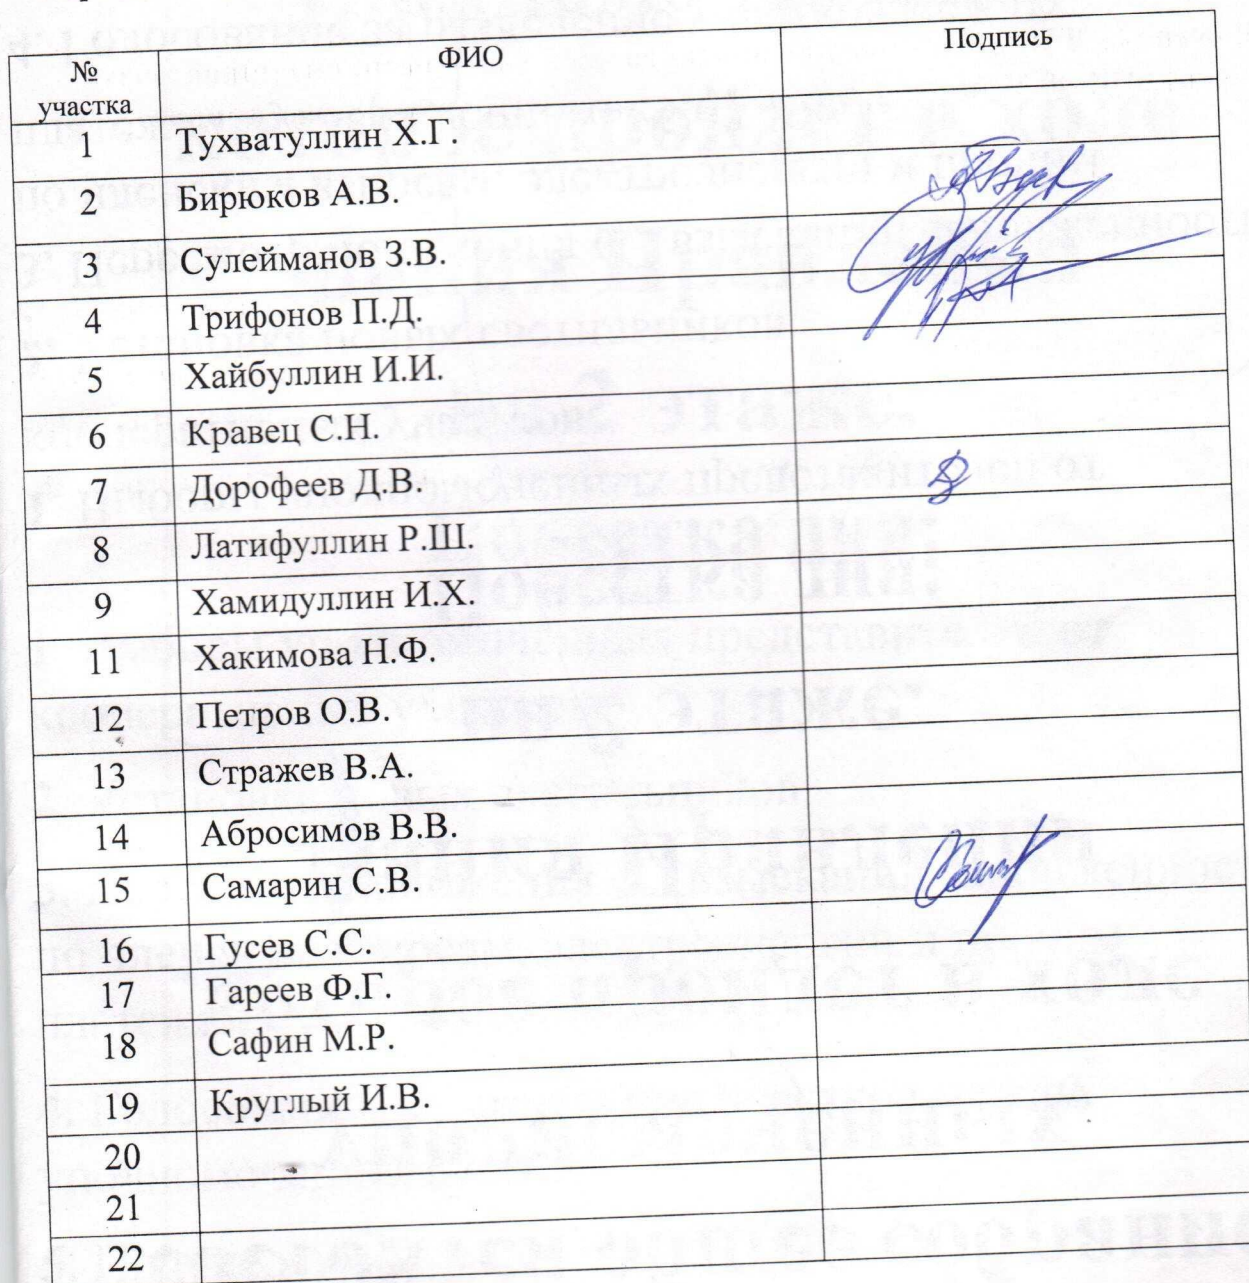 № участка ФИО Подпись
1 Тухватуллин Х.Г.
2 Бирюков А.В.
3 Сулейманов З.В.
4 Трифонов П.Д.
5 Хайбуллин И.И.
6 Кравец С.Н.
7 Дорофеев Д.В.
8 Латифуллин Р.Ш.
9 Хамидуллин И.Х.
11 Хакимова Н.Ф.
12 Петров О.В.
13 Стражев В.А.
14 Абросимов В.В.
15 Самарин С.В.
16 Гусев С.С.
17 Гареев Ф.Г.
18 Сафин М.Р.
19 Круглый И.В.
20
21
22